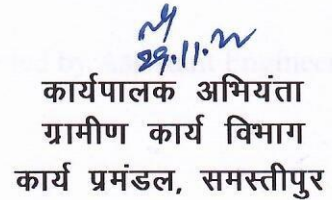 29.11.22
कार्यपालक अभियंता
ग्रामीण कार्य विभाग
कार्य प्रमंडल, समस्तीपुर